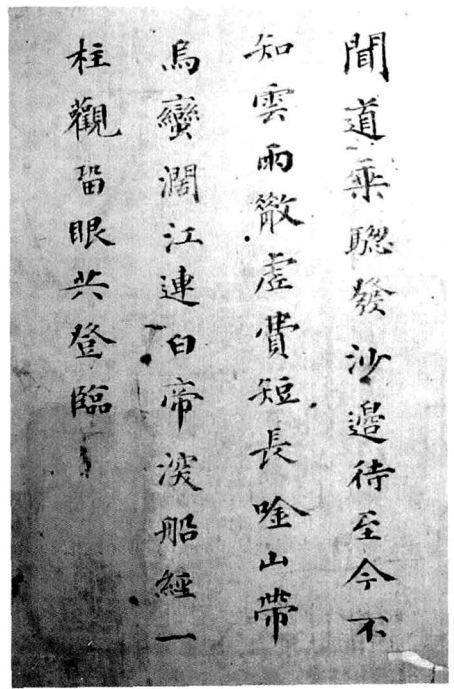 聞道乘驄發沙邊待至今不
知雲雨散虛費短長吟山帶
烏蠻濶江連白帝深船經一
柱觀留眼共登臨